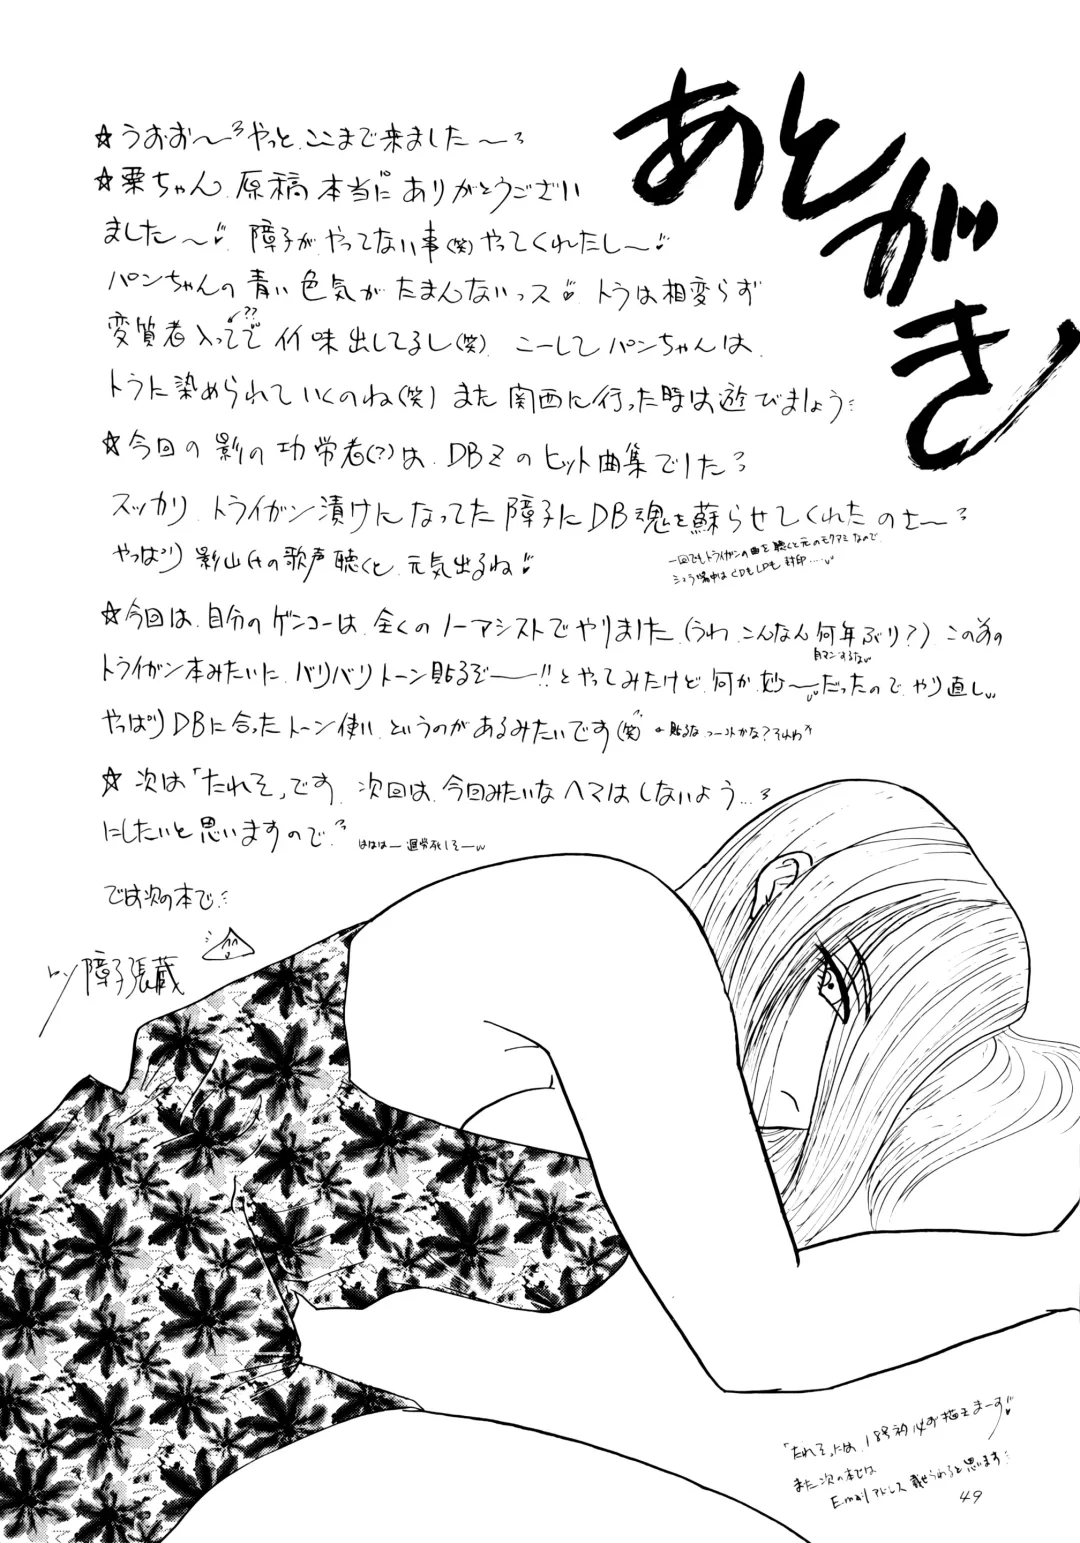 あとがき
☆うおお〜やっとここまで来ました〜
☆栗ちゃん原稿本当にありがとうござい
ました〜障子がやってない事(笑)やってくれたし〜
パンちゃんの青い色気がたまんないっス トラは相変らず
変質者入ってて??イイ味出してるし(笑) こーしてパンちゃんは
トラに染められていくのね(笑)また関西に行った時は遊びましょう
☆今回の影の功労者(?)は、DBZのヒット曲集でした
スッカリトライガン漬けになってた障子にDB魂を蘇らせてくれたのさ〜
やっぱり影山さんの歌声聴くと元気出るね
一回でもトライガンの曲を聴くと元のモクアミなので、
シュラ場中はCDもLDも封印……
☆今回は、自分のゲンコーは、全くのノーアシストでやりました(うわ、こんなん何年ぶり?)この前の
自マンするな
トライガン本みたいに、バリバリトーン貼るぞ——!!とやってみたけど、何か妙〜だったので、やり直し
やっぱりDBに合ったトーン使いというのがあるみたいです(笑)
☆次は「たれそ」です。次回は、今回みたいなヘマはしないよう…
にしたいと思いますので
ははは—過労死しそ—
では次の本で
障子張蔵
「たれそ」には、18号初心者が描きまーす
また次の本では
Emailアドレス載せられると思います
49